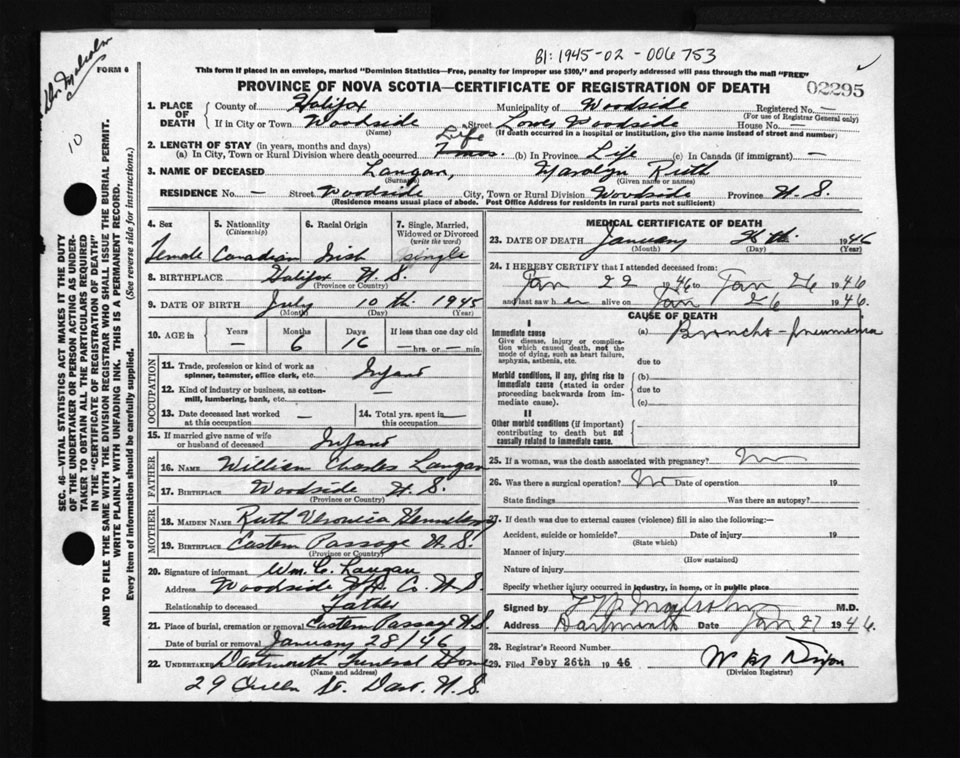 B1: 1945-02-006753
Dr. Malcolm
10
FORM 6
This form if placed in an envelope, marked "Dominion Statistics—Free, penalty for improper use $300," and properly addressed will pass through the mail "FREE"
PROVINCE OF NOVA SCOTIA—CERTIFICATE OF REGISTRATION OF DEATH
02295
1. PLACE OF DEATH
County of Halifax Municipality of Woodside Registered No. —
(For use of Registrar General only)
If in City or Town Woodside Street Lower Woodside House No. —
(Name) (If death occurred in a hospital or institution, give the name instead of street and number)
2. LENGTH OF STAY (in years, months and days)
(a) In City, Town or Rural Division where death occurred Life (b) In Province Life (c) In Canada (if immigrant) —
3. NAME OF DECEASED Langan, Carolyn Ruth
(Surname) (Given name or names)
RESIDENCE No. — Street Woodside City, Town or Rural Division Woodside Province N.S.
(Residence means usual place of abode. Post Office Address for residents in rural parts not sufficient)
4. Sex
Female
5. Nationality
(Citizenship)
Canadian
6. Racial Origin
Irish
7. Single, Married, Widowed or Divorced
(write the word)
single
8. BIRTHPLACE Halifax N.S.
(Province or Country)
9. DATE OF BIRTH July 10th 1945
(Month) (Day) (Year)
10. AGE in
Years Months Days If less than one day
— 6 16 —hrs. or —min.
OCCUPATION
11. Trade, profession or kind of work as spinner, teamster, office clerk, etc. Infant
12. Kind of industry or business, as cotton-mill, lumbering, bank, etc. —
13. Date deceased last worked at this occupation —
14. Total yrs. spent in this occupation —
15. If married give name of wife or husband of deceased Infant
FATHER
16. NAME William Charles Langan
17. BIRTHPLACE Woodside N.S.
(Province or Country)
MOTHER
18. MAIDEN NAME Ruth Veronica
19. BIRTHPLACE Eastern Passage N.S.
(Province or Country)
20. Signature of informant Wm. C. Langan
Address Woodside Hfx. Co. N.S.
Relationship to deceased Father
21. Place of burial, cremation or removal Eastern Passage N.S.
Date of burial or removal January 28/46
22. UNDERTAKER Dartmouth Funeral Home
(Name and address)
29 Queen St. Dart. N.S.
MEDICAL CERTIFICATE OF DEATH
23. DATE OF DEATH January 26th 1946
(Month) (Day)
24. I HEREBY CERTIFY that I attended deceased from:
Jan 22 1946 to Jan 26 1946
and last saw her alive on Jan 26 1946.
CAUSE OF DEATH
I
Immediate cause
Give disease, injury or complication which caused death, not the mode of dying, such as heart failure, asphyxia, asthenia, etc.
(a) Broncho-pneumonia
due to
Morbid conditions, if any, giving rise to immediate cause (stated in order proceeding backwards from immediate cause).
(b)
due to
(c)
II
Other morbid conditions (if important) contributing to death but not causally related to immediate cause.
25. If a woman, was the death associated with pregnancy? No
26. Was there a surgical operation? No Date of operation 19
State findings Was there an autopsy?
27. If death was due to external causes (violence) fill in also the following:—
Accident, suicide or homicide? Date of injury 19
(State which)
Manner of injury
(How sustained)
Nature of injury
Specify whether injury occurred in industry, in home, or in public place
Signed by M.D.
Address Dartmouth Date Jan 27 1946.
28. Registrar's Record Number
29. Filed Feby 26th 1946
W M Dixon
(Division Registrar)
SEC. 46—VITAL STATISTICS ACT MAKES IT THE DUTY
OF THE UNDERTAKER OR PERSON ACTING AS UNDER-
TAKER TO OBTAIN ALL THE PARTICULARS REQUIRED
IN THE "CERTIFICATE OF REGISTRATION OF DEATH"
AND TO FILE THE SAME WITH THE DIVISION REGISTRAR WHO SHALL ISSUE THE BURIAL PERMIT.
WRITE PLAINLY WITH UNFADING INK. THIS IS A PERMANENT RECORD.
Every item of information should be carefully supplied. (See reverse side for instructions.)